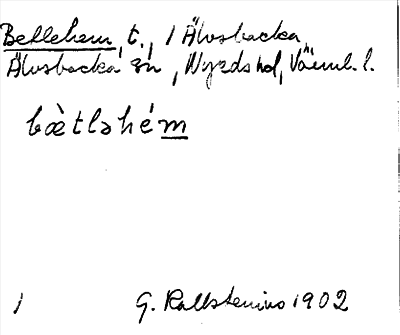 Betlehem, t., / Älvsbacka,
Älvsbacka sn, Nyeds hd, Värml. l.
bætləhém
1 G. Kallstenius 1902